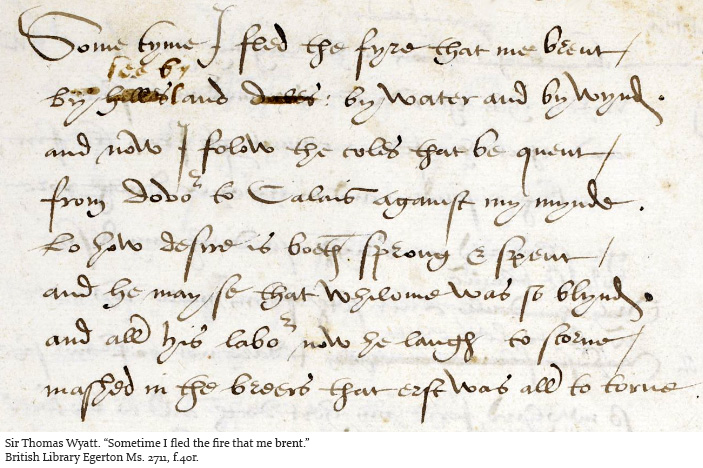 Some tyme I fled the fyre that me brent /
see by
by hilles land dales : by water and by wynd .
and now I folow the coles that be quent /
from dovor to Calais against my mynde .
Lo how desire is boeth sprong & spent /
and he may se that whilome was so blynd .
and all his labor now he laugh to scorne /
mashed in the breers that erst was all to torne .
Sir Thomas Wyatt. “Sometime I fled the fire that me brent.”
British Library Egerton Ms. 2711, f.40r.